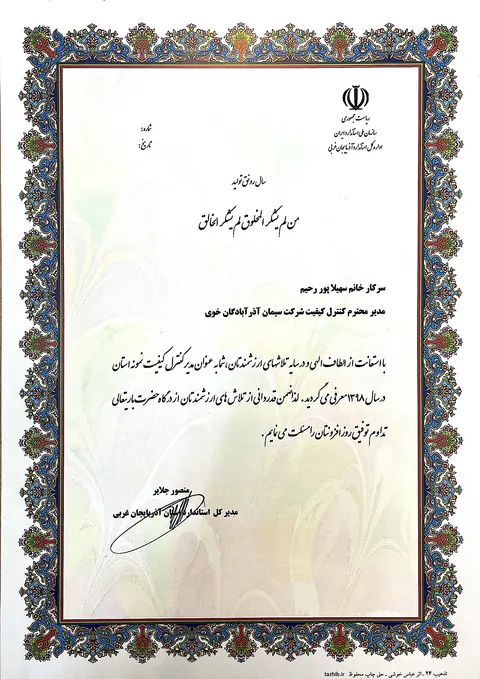 ریاست جمهوری
سازمان ملی استاندارد ایران
اداره کل استاندارد آذربایجان غربی
شماره:
تاریخ:
سال رونق تولید
من لم یشکر المخلوق لم یشکر الخالق
سرکار خانم سهیلا پور رحیم
مدیر محترم کنترل کیفیت شرکت سیمان آذرآبادگان خوی
با استعانت از الطاف الهی و در سایه تلاشهای ارزشمندتان، شما به عنوان مدیر کنترل کیفیت نمونه استان
در سال ۱۳۹۸ معرفی می گردید. لذا ضمن قدردانی از تلاش های ارزشمندتان از درگاه حضرت باریتعالی
تداوم توفیق روز افزونتان را مسئلت می نمایم.
منصور جلایر
مدیر کل استاندارد استان آذربایجان غربی
تذهیب ۲۴ ـ اثر عباس خوشی ـ حق چاپ محفوظ tazhib.ir